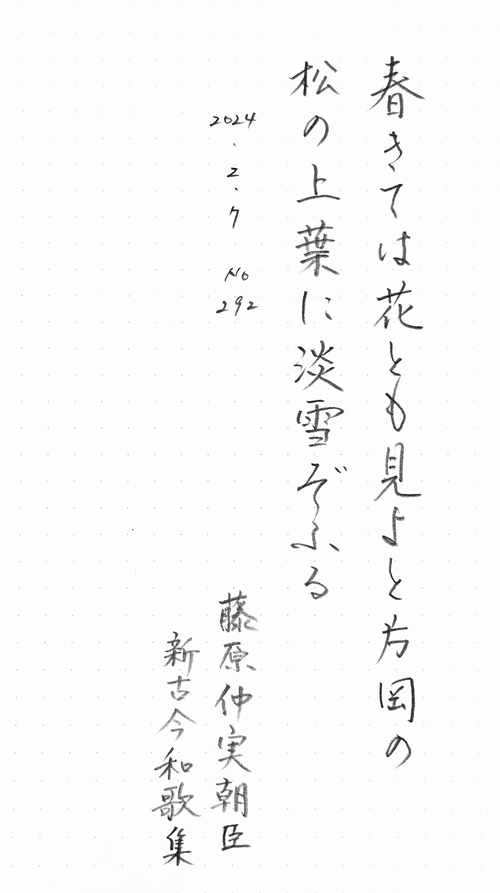 春きては花とも見よと片岡の
松の上葉に淡雪ぞふる
2024.2.7 No 292
藤原仲実朝臣
新古今和歌集